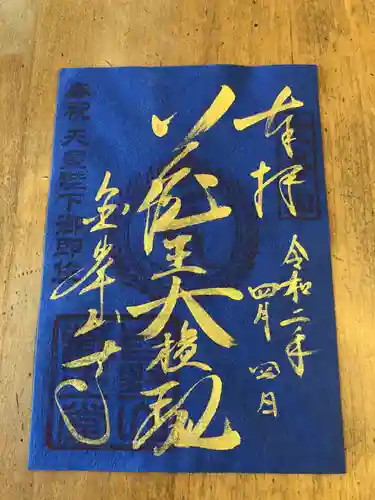 奉拝
令和二年
四月四日
蔵王大権現
金峯山寺
奉祝天皇陛下御即位